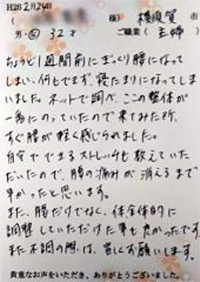 H26 2月24日
様) 横須賀 市
男・女 32才 ご職業( 主婦 )
ちょうど1週間前にぎっくり腰になって
しまい、何もできず、寝たきりになってしま
いました。ネットで調べ、この整体が
一番にのっていたので来てみた所、
すぐ腰が軽く感じられました。
自分でできるストレッチも教えていた
だいたので、腰の痛みが消えるまで
早かったと思います。
また、腰だけでなく、体全体的に
調整していただけた事も良かったです。
また不調の際は、宜しくお願いします。
貴重なお声をいただき、ありがとうございました。